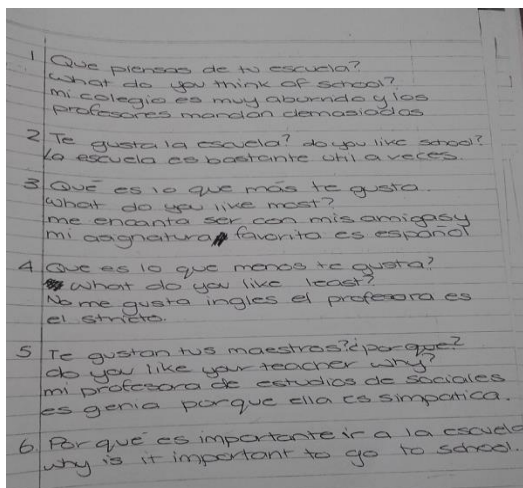 1 Que piensas de tu escuela?
what do you think of school?
mi colegio es muy aburrido y los
profesores mandan demasiados
2 Te gusta la escuela? do you like school?
La escuela es bastante util a veces.
3 Qué es lo que más te gusta.
what do you like most?
me encanta ser con mis amigas y
mi asignatura favorita es español
4 Que es lo que menos te gusta?
what do you like least?
No me gusta ingles el profesora es
el stricto.
5 Te gustan tus maestros? ¿por que?
do you like your teacher why?
mi profesora de estudios de sociales
es genia porque ella es simpatica.
6. Por qué es importante ir a la escuela
why is it important to go to school.